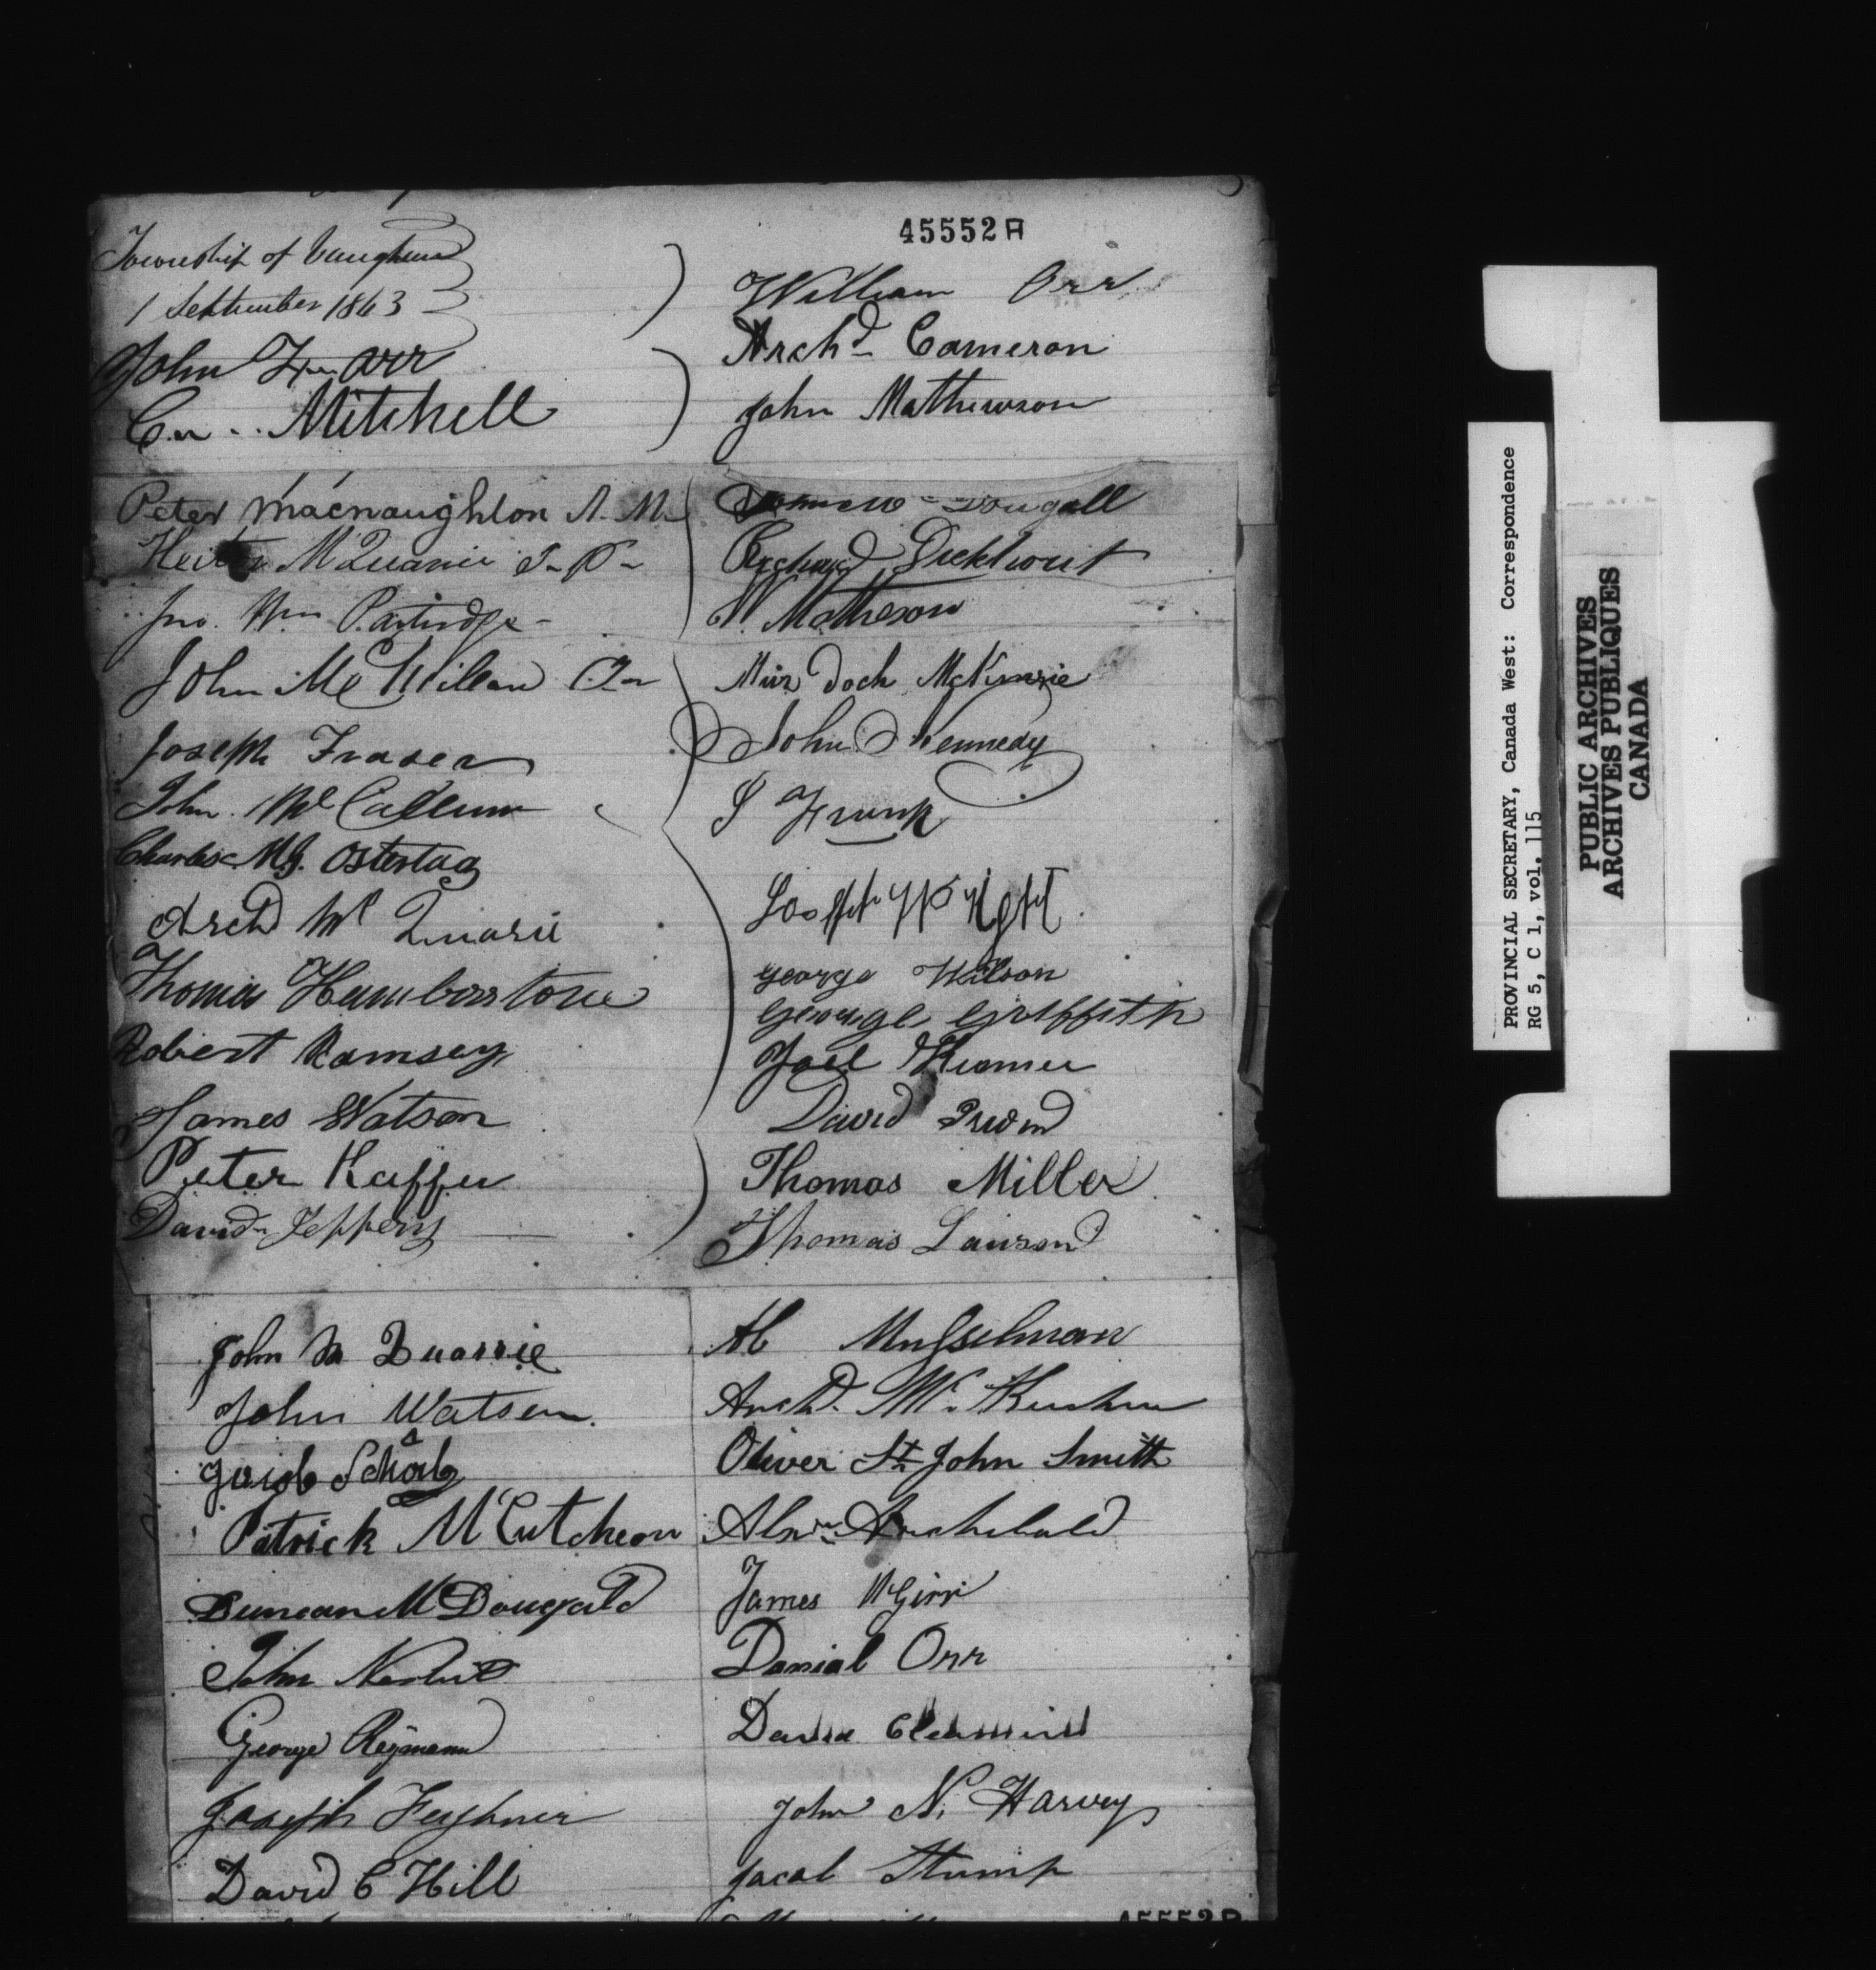 45552A
Township of Vaughan
1 September 1863
John Orr
Mitchell
William Orr
Archd Cameron
John Mathewson
Peter Macnaughton A. M.
McQuarrie J. P.
Jno. Wm Partridge
John McMillan
Joseph Fraser
John McCallum
Charles M.J. Ostertag
Archd Mc Quarie
Thomas Humberstone
Robert Ramsey
James Watson
Peter Kaffer
David Jeffery
Dougall
Richard
W. Matheson
Murdoch McKinzie
John Kennedy
S Frunk
Joseph Wright
George Wilson
George Griffith
Joel Kramer
David
Thomas Miller
Thomas Lawson
John Mc Quarrie
John Watson.
Jacob Schob
Patrick McCutcheon
Duncan McDougald
John Nesbit
George Reymann
Joseph
David C Hill
Ab Musselman
Archd. Mc
Oliver St John Smith
Alexr Archibald
James McGirr
Danial Orr
David
John N. Harvey
Jacob Stump
45552B
PROVINCIAL SECRETARY, Canada West: Correspondence
RG 5, C 1, vol. 115
PUBLIC ARCHIVES
ARCHIVES PUBLIQUES
CANADA